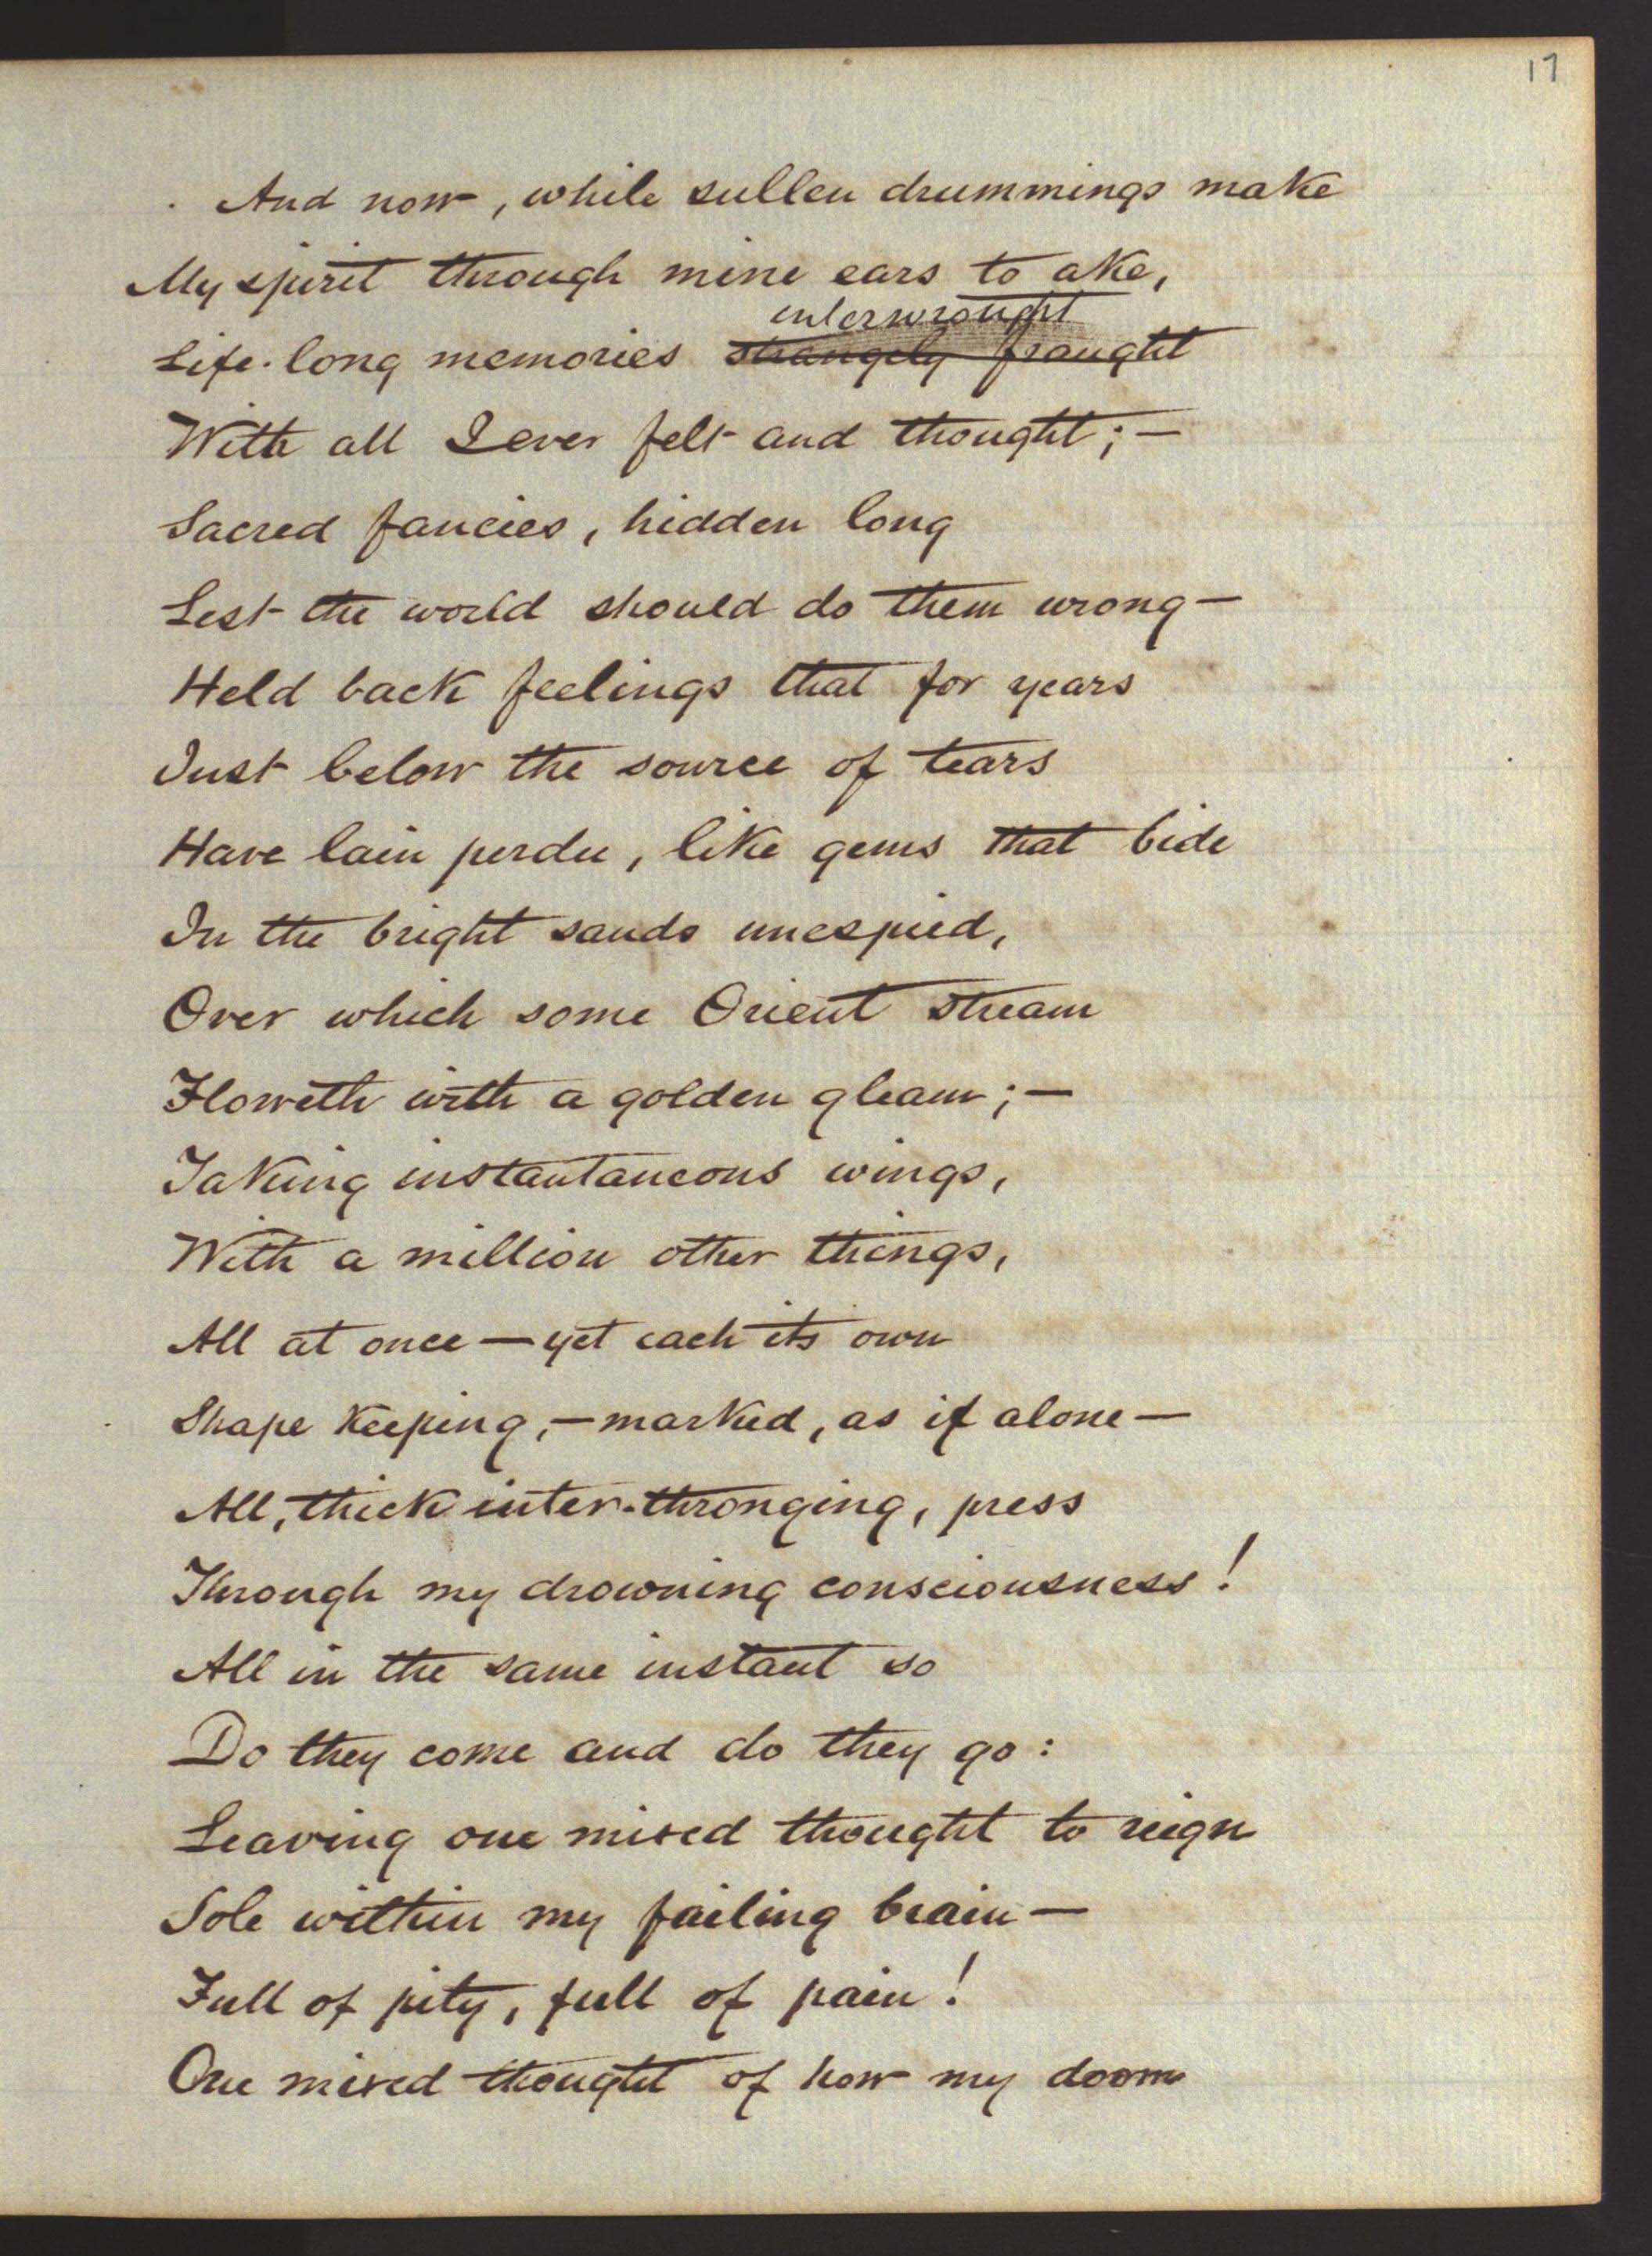 17
And now, while sullen drummings make
My spirit through mine ears to ake,
interwrought
Life-long memories strangely fraught
With all I ever felt and thought;—
Sacred fancies, hidden long
Lest the world should do them wrong—
Held back feelings that for years
Just below the source of tears
Have lain perdu, like gems that bide
In the bright sands unespied,
Over which some Orient stream
Floweth with a golden gleam;—
Taking instantaneous wings,
With a million other things,
All at once—yet each its own
Shape keeping,—marked, as if alone—
All, thick inter-thronging, press
Through my drowning consciousness!
All in the same instant so
Do they come and do they go:
Leaving one mixed thought to reign
Sole within my failing brain—
Full of pity, full of pain!
One mixed thought of how my doom